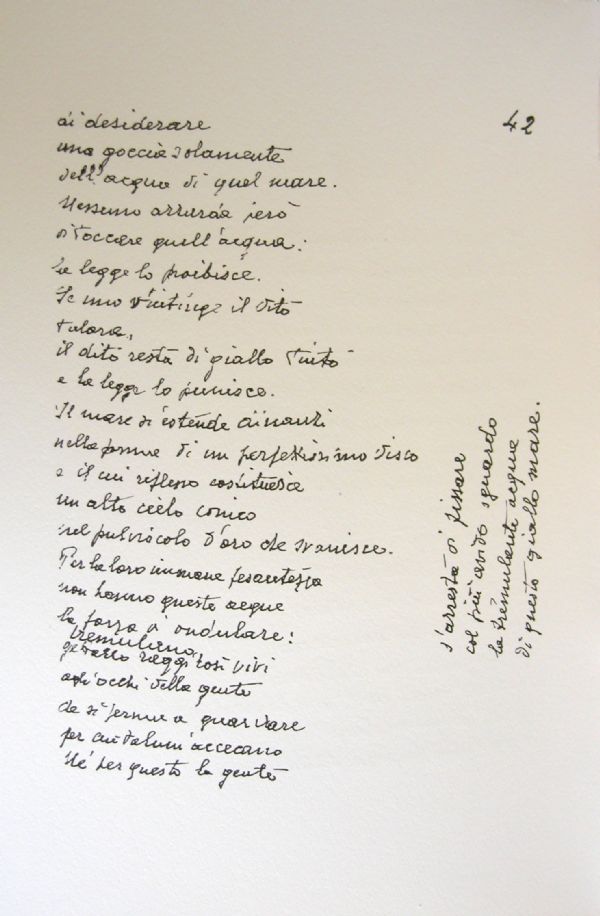 42
di desiderare
una goccia solamente
dell'acqua di quel mare.
Nessuno azzarda però
di toccare quell'acqua:
la legge lo proibisce.
Se uno v'intinge il dito
talora,
il dito resta di giallo tinto
e la legge lo punisce.
Il mare si estende dinanzi
nella forma di un perfettissimo disco
e il cui riflesso costituisce
un alto cielo conico
nel pulviscolo d'oro che svanisce.
Per la loro immane pesantezza
non hanno queste acque
la forza d'ondulare:
tremulano,
gettano raggi così vivi
agli occhi della gente
che si ferma a guardare
per cui taluni accecano
Né per questo la gente
s'arresta di fissare
col più avido sguardo
la tremulante acqua
di questo giallo mare.